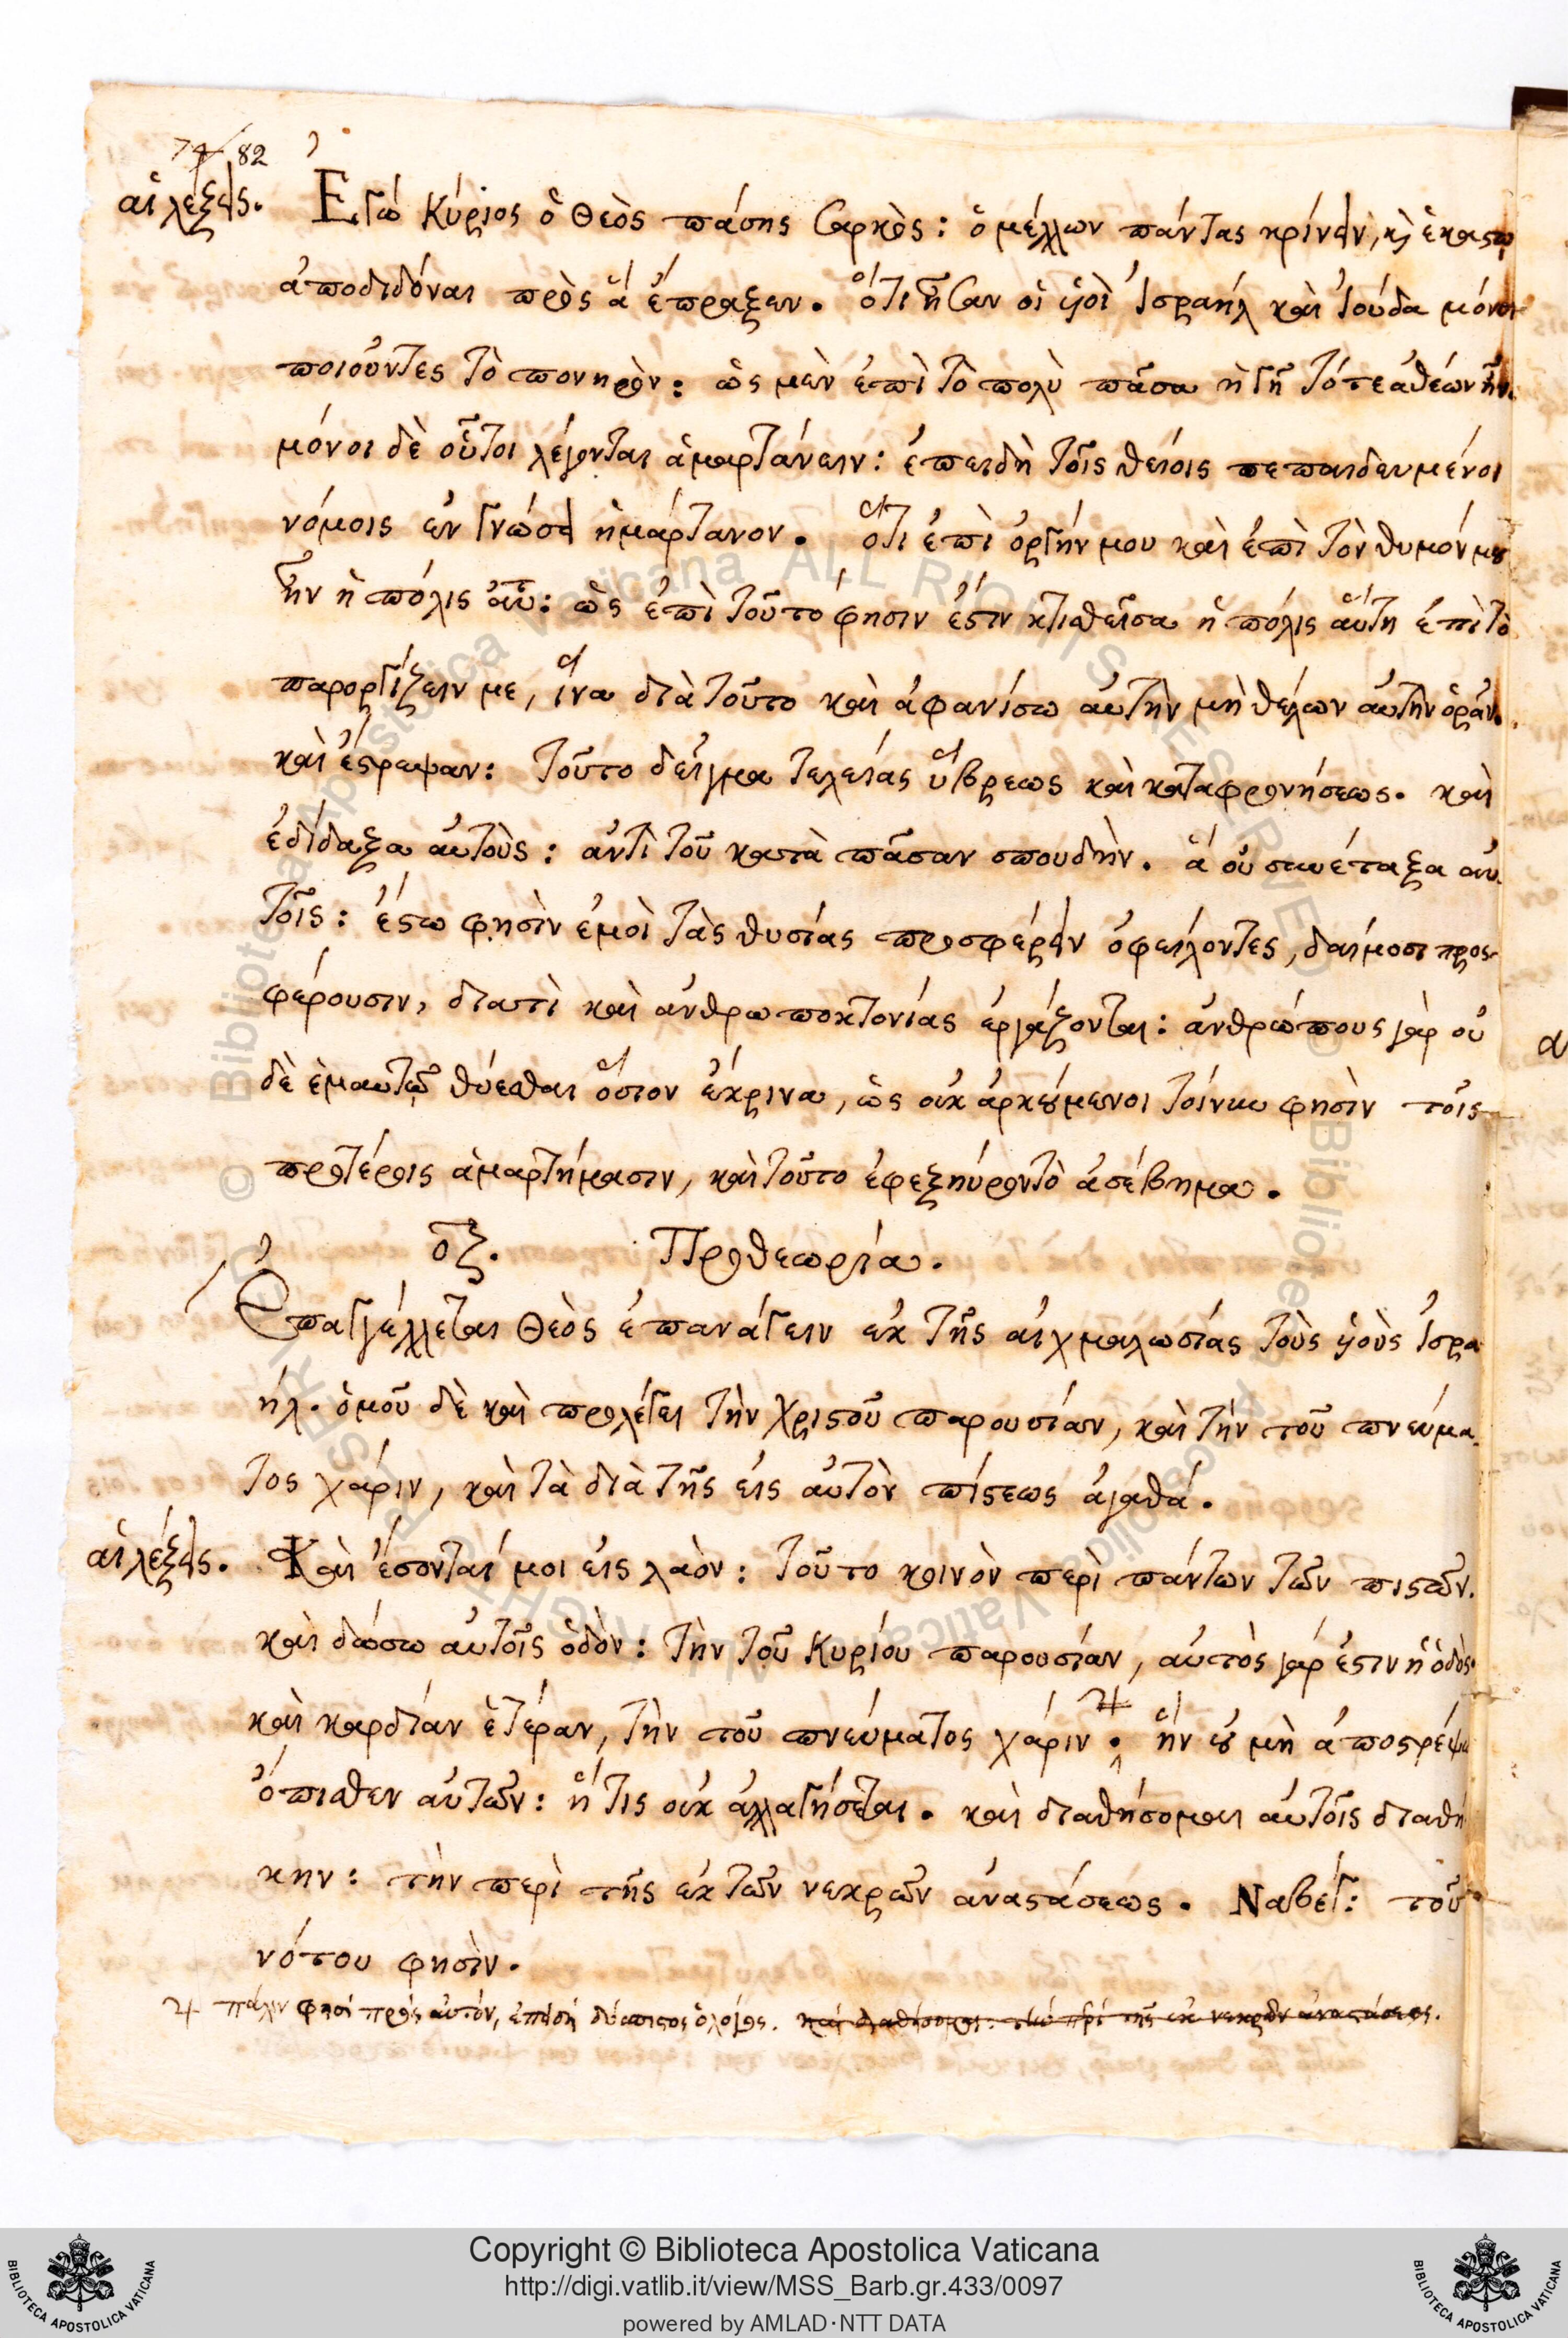 74 82
αἱ λέξεις. Ἐγώ Κύριος ὁ Θεὸς πάσης σαρκὸς: ὁ μέλλων πάντας κρίνειν, κὶ ἑκάστῳ
ἀποδιδόναι πρὸς ἅ ἔπραξεν. ὅτι ἦσαν οἱ ὑοὶ Ἰσραήλ καὶ Ἰούδα μόνοι
ποιοῦντες τὸ πονηρὸν: ὡς μὲν ἐπὶ τὸ πολὺ πᾶσα ἡ γῆ τότε ἀθέων ἦν.
μόνοι δὲ οὗτοι λέγονται ἁμαρτάνειν: ἐπειδὴ τοῖς θείοις πεπαιδευμένοι
νόμοις ἐν γνώσει ἡμάρτανον. ὅτι ἐπὶ ὀργήν μου καὶ ἐπὶ τὸν θυμόν μου
ἦν ἡ πόλις αὕ: ὡς ἐπὶ τοῦτο φησιν ἐστιν κτισθεῖσα ἡ πόλις αὕτη ἐπὶ τὸ
παροργίζειν με, ἵνα διὰ τοῦτο καὶ ἀφανίσω αὐτὴν μὴ θέλων αὐτὴν ὁρᾶν.
καὶ ἔστρεψαν: τοῦτο δεῖγμα τελείας ὕβρεως καὶ καταφρονήσεως. καὶ
ἐδίδαξα αὐτοὺς: ἀντὶ τοῦ κατὰ πᾶσαν σπουδὴν. ἅ οὐ συνέταξα αὐ
τοῖς: ἔστω φησὶν ἐμοὶ τὰς θυσίας προσφέρειν ὀφείλοντες, δαίμοσι προς-
φέρουσιν, διατὶ καὶ ἀνθρωποκτονίας ἐργάζονται: ἀνθρώπους γὰρ οὐ
δὲ ἐμαυτῷ θύεσθαι ὅσιον ἔκρινα, ὡς οὐκ ἀρκούμενοι τοίνυν φησὶν τοῖς
προτέροις ἁμαρτήμασιν, καὶ τοῦτο ἐφεξηύροντὸ ἀσέβημα.
οζ. Προθεωρία.
Ἐπαγγέλλεται Θεὸς ἐπανάγειν ἐκ τῆς αἰχμαλωσίας τοὺς ὑοὺς Ἰσρα
ήλ. ὁμοῦ δὲ καὶ προλέγει τὴν Χριστοῦ παρουσίαν, καὶ τὴν τοῦ πνεύμα
τος χάριν, καὶ τὰ διὰ τῆς εἰς αὐτὸν πίστεως ἀγαθά.
αἱ λέξεις. Καὶ ἔσονταί μοι εἰς λαὸν: τοῦτο κοινὸν περὶ πάντων τῶν πιστῶν.
καὶ δώσω αὐτοῖς ὁδὸν: τὴν τοῦ Κυρίου παρουσίαν, αὐτὸς γάρ ἐστιν ἡ ὁδὸς.
καὶ καρδίαν ἑτέραν, τὴν τοῦ πνεύματος χάριν. ἥν οὐ μὴ ἀποστρέψω
ὄπισθεν αὐτῶν: ἥ τις οὐκ ἀλλαγήσεται. καὶ διαθήσομαι αὐτοῖς διαθή
κην: τὴν περὶ τῆς ἐκ τῶν νεκρῶν ἀναστάσεως. Ναβέγ: τοῦ
νότου φησὶν.
πάλιν φησί πρὸς αὐτόν, ἐπειδὴ δύσπιστος ὁ λόγος. καὶ διαθήσομαι: τὴν περὶ τῆς ἐκ νεκρῶν ἀναστάσεως.
Copyright © Biblioteca Apostolica Vaticana
http://digi.vatlib.it/view/MSS_Barb.gr.433/0097
powered by AMLAD·NTT DATA
BIBLIOTECA APOSTOLICA VATICANA
BIBLIOTECA APOSTOLICA VATICANA